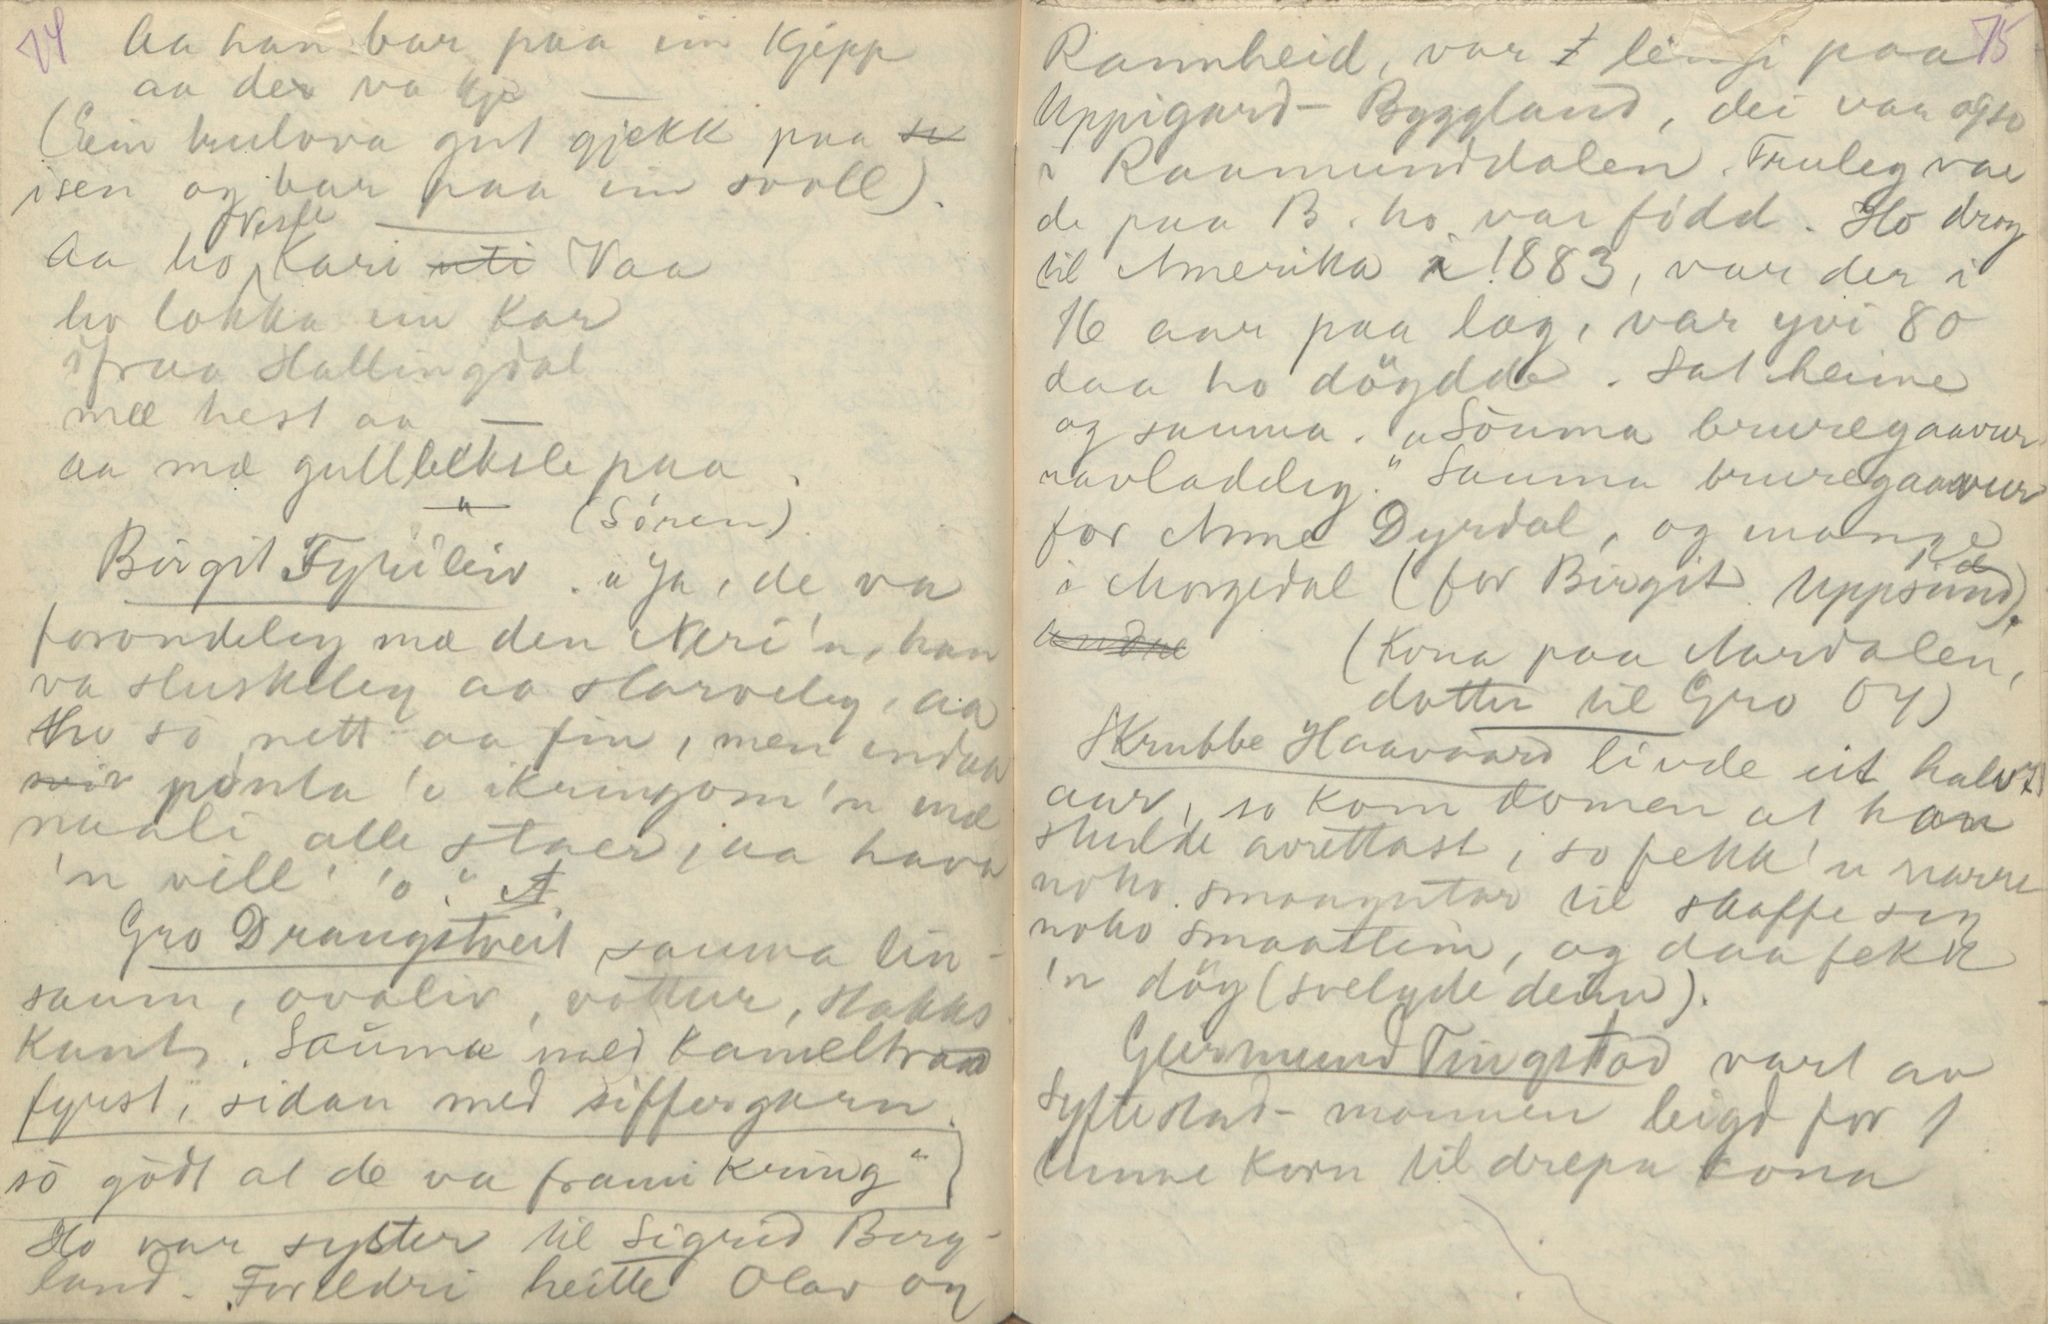 74
Aa han bar paa ein Kjepp
aa der va kje
(Ein trulova gut gjekk paa
isen og bar paa ein svoll).
Aa ho Vesle Kari uti Vaa
ho lokka ein Kar
ifraa Hallingdal
mæ hest aa
aa mæ gullbeksle paa.
" (Sören).
Birgit Tyriliv. "Ja, de va
forondeleg mæ den Neri'n, han
va sluskeleg aa slarveleg, aa
ho so nett aa fin, men endaa
ponta 'o ikringom 'n mæ
naali alle staer, aa hava
'n vill' 'o."
Gro Draugstveit sauma lin-
saum, ovaliv, vottur, stakks
Kant. Sauma med Kameltraad
fyrst, sidan med siffergarn
so godt at de va frami Kring"
Ho var syster til Sigrid Berg-
land. Foreldri heitte Olav og
75
Rannheid, var lengi paa
Uppigard-Byggland, dei var ogso
i Raamunddalen. Truleg var
de paa B. ho var född. Ho drog
til Amerika i 1883, var der i
16 aar paa lag, var yvi 80
daa ho döydde. Sat heime
og sauma. "Sauma bruregaavur
navladdig." Sauma bruregaavur
for Anne Dyrdal, og mange
i Morgedal (for Birgit Uppsund).
andre
(Kona paa Aardalen,
dotter til Gro Öy)
Skrubbe Haavaard livde eit halvt
aar, so kom domen at han
skulde avrettast, so fekk 'n narre
noko smaagutar til skaffe seg
noko smaastein, og daa fekk
'n döy (svelgde dein).
Germund Tingstad vart av
Syftestad-mannen leigd for 1
tunne Korn til drepa kona